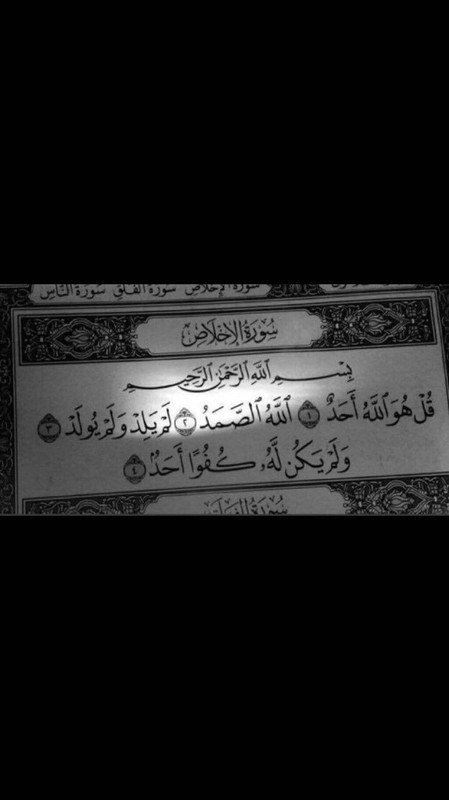 سورة الإخلاص سورة الفلق سورة الناس
سُورَةُ الإِخْلَاصِ
بِسْمِ ٱللَّهِ ٱلرَّحْمَٰنِ ٱلرَّحِيمِ
قُلْ هُوَ ٱللَّهُ أَحَدٌ ١ ٱللَّهُ ٱلصَّمَدُ ٢ لَمْ يَلِدْ وَلَمْ يُولَدْ ٣
وَلَمْ يَكُن لَّهُۥ كُفُوًا أَحَدٌۢ ٤
سُورَةُ الفَلَقِ